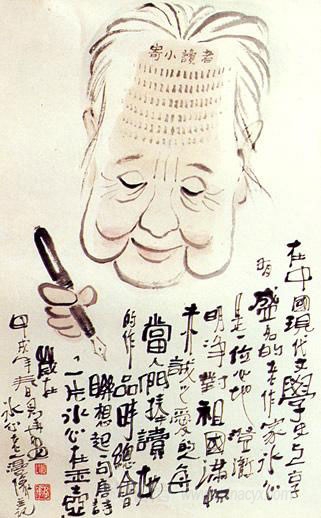 寄小讀者
在中國現代文學史上享
有盛名的老作家冰心
是一位心地澄澈
明净對祖國滿怀
赤誠之愛的每
當人們捧讀她
的作品時總會
聯想起一句唐詩
一片冰心在玉壺
歲在
甲戌年春月馬
冰心老漫像